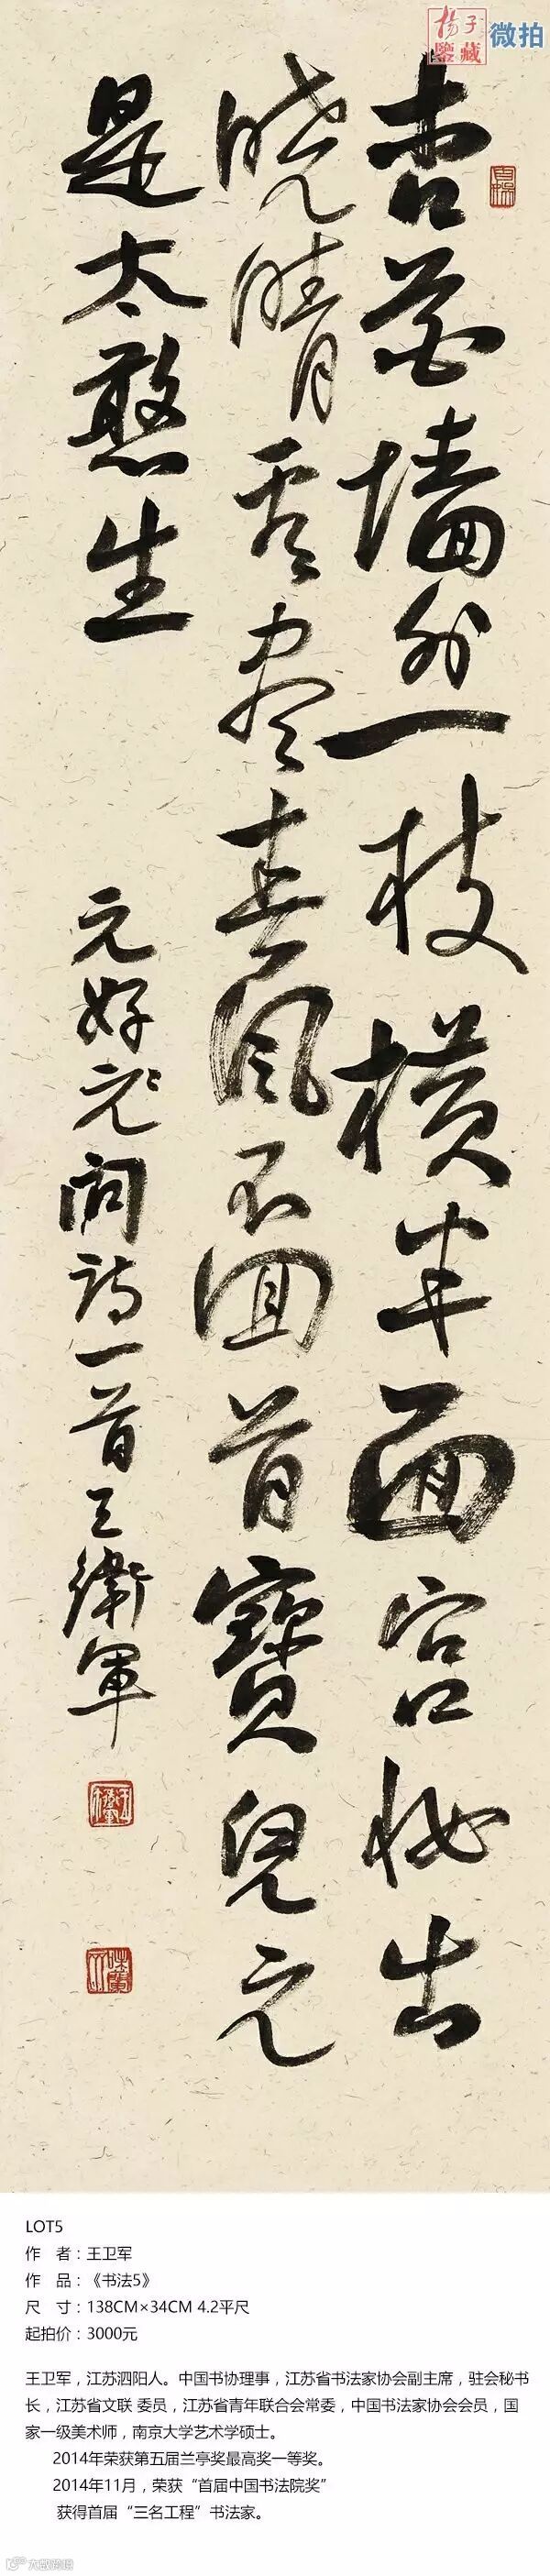 揚子
鑒藏
微拍
杏花墻外一枝橫半面宮妝出
曉晴看盡春風不回首寶兒元
是太憨生
元好元問詩一首王衛軍
LOT5
作 者：王卫军
作 品：《书法5》
尺 寸：138CM×34CM 4.2平尺
起拍价：3000元
王卫军，江苏泗阳人。中国书协理事，江苏省书法家协会副主席，驻会秘书
长，江苏省文联 委员，江苏省青年联合会常委，中国书法家协会会员，国
家一级美术师，南京大学艺术学硕士。
2014年荣获第五届兰亭奖最高奖一等奖。
2014年11月，荣获“首届中国书法院奖”
获得首届“三名工程”书法家。
大数跨境